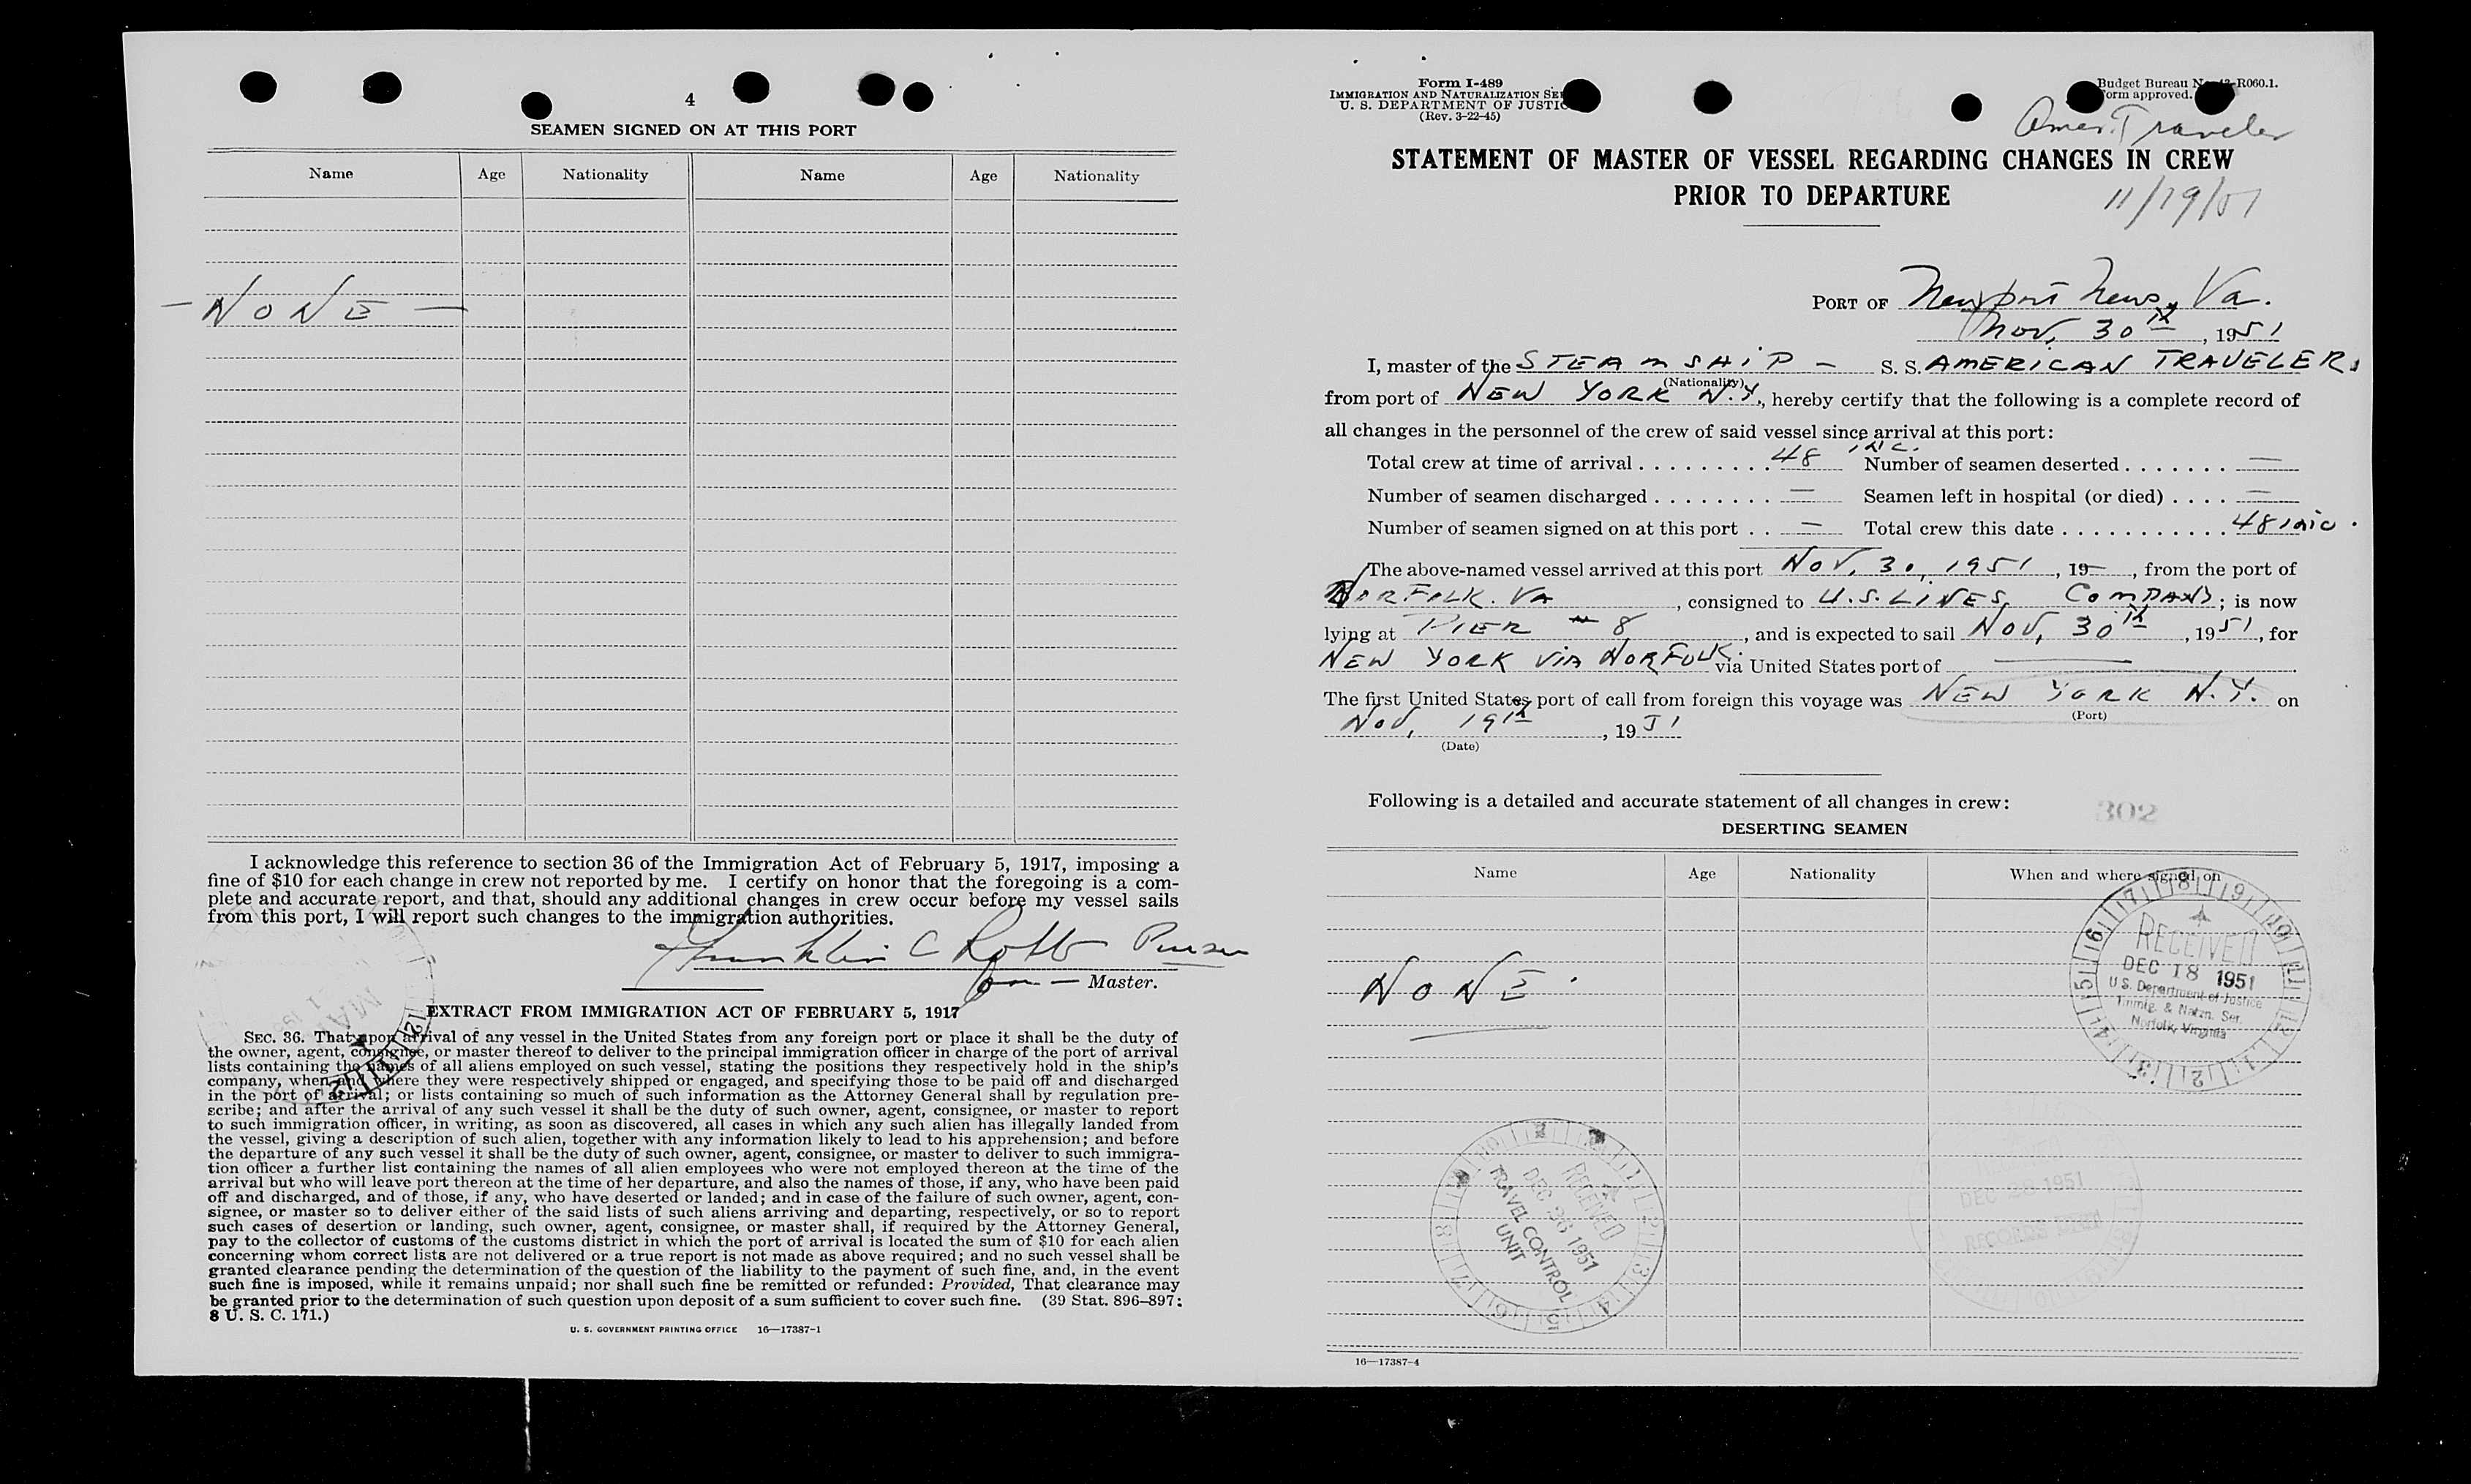 4
SEAMEN SIGNED ON AT THIS PORT
Name Age Nationality Name Age Nationality
— NONE —
I acknowledge this reference to section 36 of the Immigration Act of February 5, 1917, imposing a
fine of $10 for each change in crew not reported by me. I certify on honor that the foregoing is a com-
plete and accurate report, and that, should any additional changes in crew occur before my vessel sails
from this port, I will report such changes to the immigration authorities.
Franklin C Robb Purser
for — Master.
EXTRACT FROM IMMIGRATION ACT OF FEBRUARY 5, 1917
SEC. 36. That upon arrival of any vessel in the United States from any foreign port or place it shall be the duty of
the owner, agent, consignee, or master thereof to deliver to the principal immigration officer in charge of the port of arrival
lists containing the names of all aliens employed on such vessel, stating the positions they respectively hold in the ship's
company, when and where they were respectively shipped or engaged, and specifying those to be paid off and discharged
in the port of arrival; or lists containing so much of such information as the Attorney General shall by regulation pre-
scribe; and after the arrival of any such vessel it shall be the duty of such owner, agent, consignee, or master to report
to such immigration officer, in writing, as soon as discovered, all cases in which any such alien has illegally landed from
the vessel, giving a description of such alien, together with any information likely to lead to his apprehension; and before
the departure of any such vessel it shall be the duty of such owner, agent, consignee, or master to deliver to such immigra-
tion officer a further list containing the names of all alien employees who were not employed thereon at the time of the
arrival but who will leave port thereon at the time of her departure, and also the names of those, if any, who have been paid
off and discharged, and of those, if any, who have deserted or landed; and in case of the failure of such owner, agent, con-
signee, or master so to deliver either of the said lists of such aliens arriving and departing, respectively, or so to report
such cases of desertion or landing, such owner, agent, consignee, or master shall, if required by the Attorney General,
pay to the collector of customs of the customs district in which the port of arrival is located the sum of $10 for each alien
concerning whom correct lists are not delivered or a true report is not made as above required; and no such vessel shall be
granted clearance pending the determination of the question of the liability to the payment of such fine, and, in the event
such fine is imposed, while it remains unpaid; nor shall such fine be remitted or refunded: Provided, That clearance may
be granted prior to the determination of such question upon deposit of a sum sufficient to cover such fine. (39 Stat. 896–897;
8 U. S. C. 171.)
U. S. GOVERNMENT PRINTING OFFICE 16—17387-1
Form I-489
IMMIGRATION AND NATURALIZATION SE
U. S. DEPARTMENT OF JUSTIC
(Rev. 3-22-45)
Budget Bureau No. 43-R060.1.
Form approved.
Amer. Traveler
STATEMENT OF MASTER OF VESSEL REGARDING CHANGES IN CREW
PRIOR TO DEPARTURE
11/19/51
PORT OF Newport News, Va.
Nov. 30th, 1951
I, master of the STEAMSHIP — S. S. AMERICAN TRAVELER,
(Nationality)
from port of NEW YORK N.Y., hereby certify that the following is a complete record of
all changes in the personnel of the crew of said vessel since arrival at this port:
Total crew at time of arrival 48 inc. Number of seamen deserted —
Number of seamen discharged — Seamen left in hospital (or died) —
Number of seamen signed on at this port — Total crew this date 48 inc.
The above-named vessel arrived at this port NOV, 30, 1951, 19—, from the port of
NORFOLK. VA, consigned to U.S. LINES COMPANY; is now
lying at PIER # 8, and is expected to sail NOV, 30th, 1951, for
NEW YORK VIA NORFOLK. via United States port of —
The first United States port of call from foreign this voyage was NEW YORK N.Y. on
(Port)
NOV, 19th, 1951
(Date)
Following is a detailed and accurate statement of all changes in crew:
302
DESERTING SEAMEN
Name Age Nationality When and where signed on
NONE.
RECEIVED
DEC 18 1951
U S. Department of Justice
Immig. & Natzn. Ser.
Norfolk, Virginia
RECEIVED
DEC 26 1951
TRAVEL CONTROL
UNIT
DEC 28 1951
16—17387-4